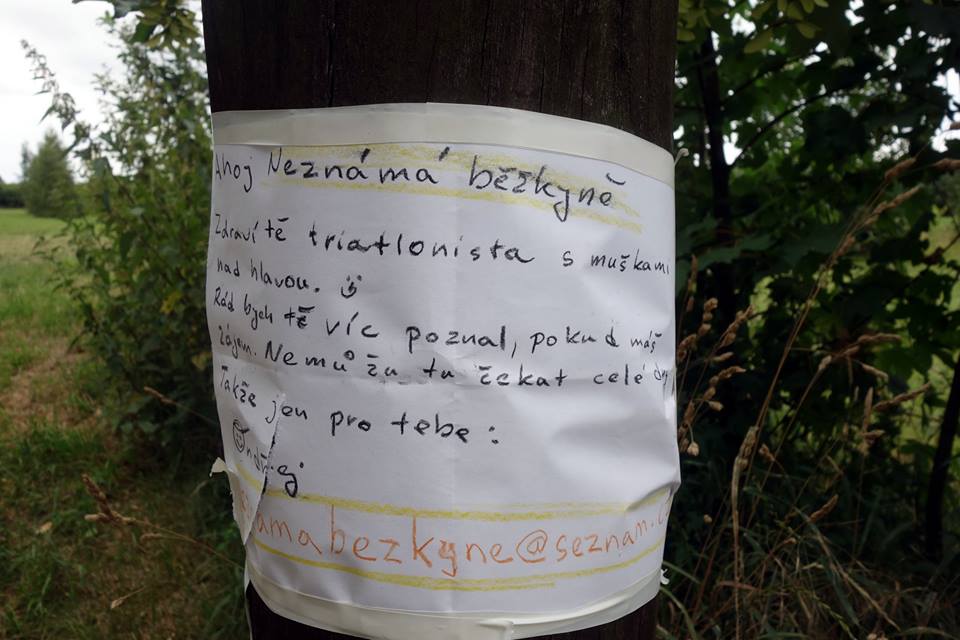 Ahoj Neznámá běžkyně
Zdraví tě triatlonista s muškami
nad hlavou.
Rád bych tě víc poznal, pokud máš
zájem. Nemůžu tu čekat celé dny
Takže jen pro tebe:
Ondřej
amabezkyne@seznam.c